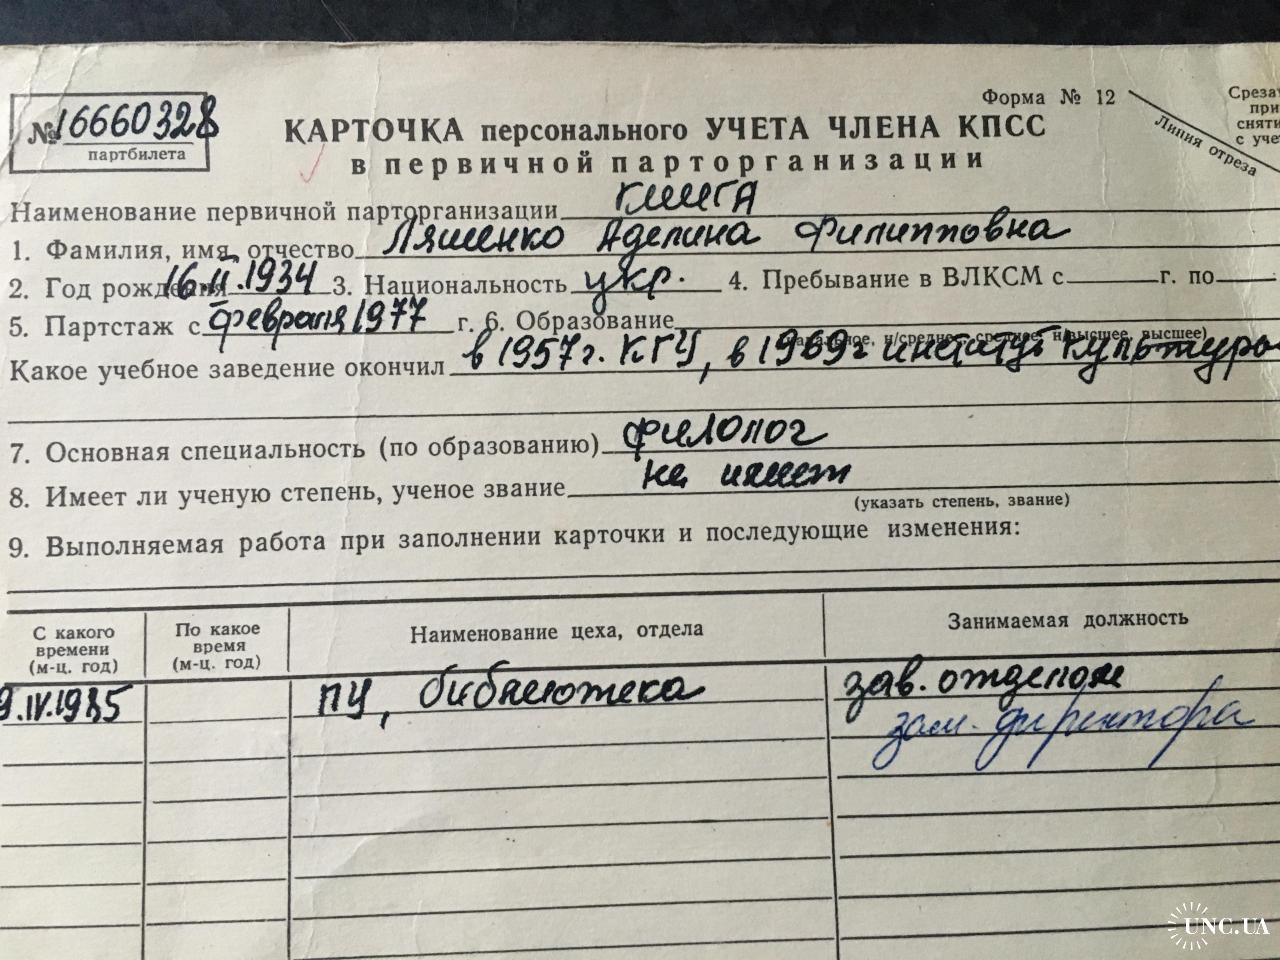 Форма № 12
Линия отреза
№ 16660328
партбилета
КАРТОЧКА персонального УЧЕТА ЧЛЕНА КПСС
в первичной парторганизации
Наименование первичной парторганизации
1. Фамилия, имя, отчество Ляшенко Аделина Филипповна
2. Год рождения 16.II.1934 3. Национальность укр. 4. Пребывание в ВЛКСМ с г. по
5. Партстаж с февраля 1977 г. 6. Образование
Какое учебное заведение окончил в 1957 г. КГУ, в 1969 г институт культуры
7. Основная специальность (по образованию) филолог
8. Имеет ли ученую степень, ученое звание не имеет
(указать степень, звание)
9. Выполняемая работа при заполнении карточки и последующие изменения:
С какого времени (м-ц. год)
По какое время (м-ц. год)
Наименование цеха, отдела
Занимаемая должность
9.IV.1985 ПУ, библиотека зав. отделом
зам. директора
UNC.UA